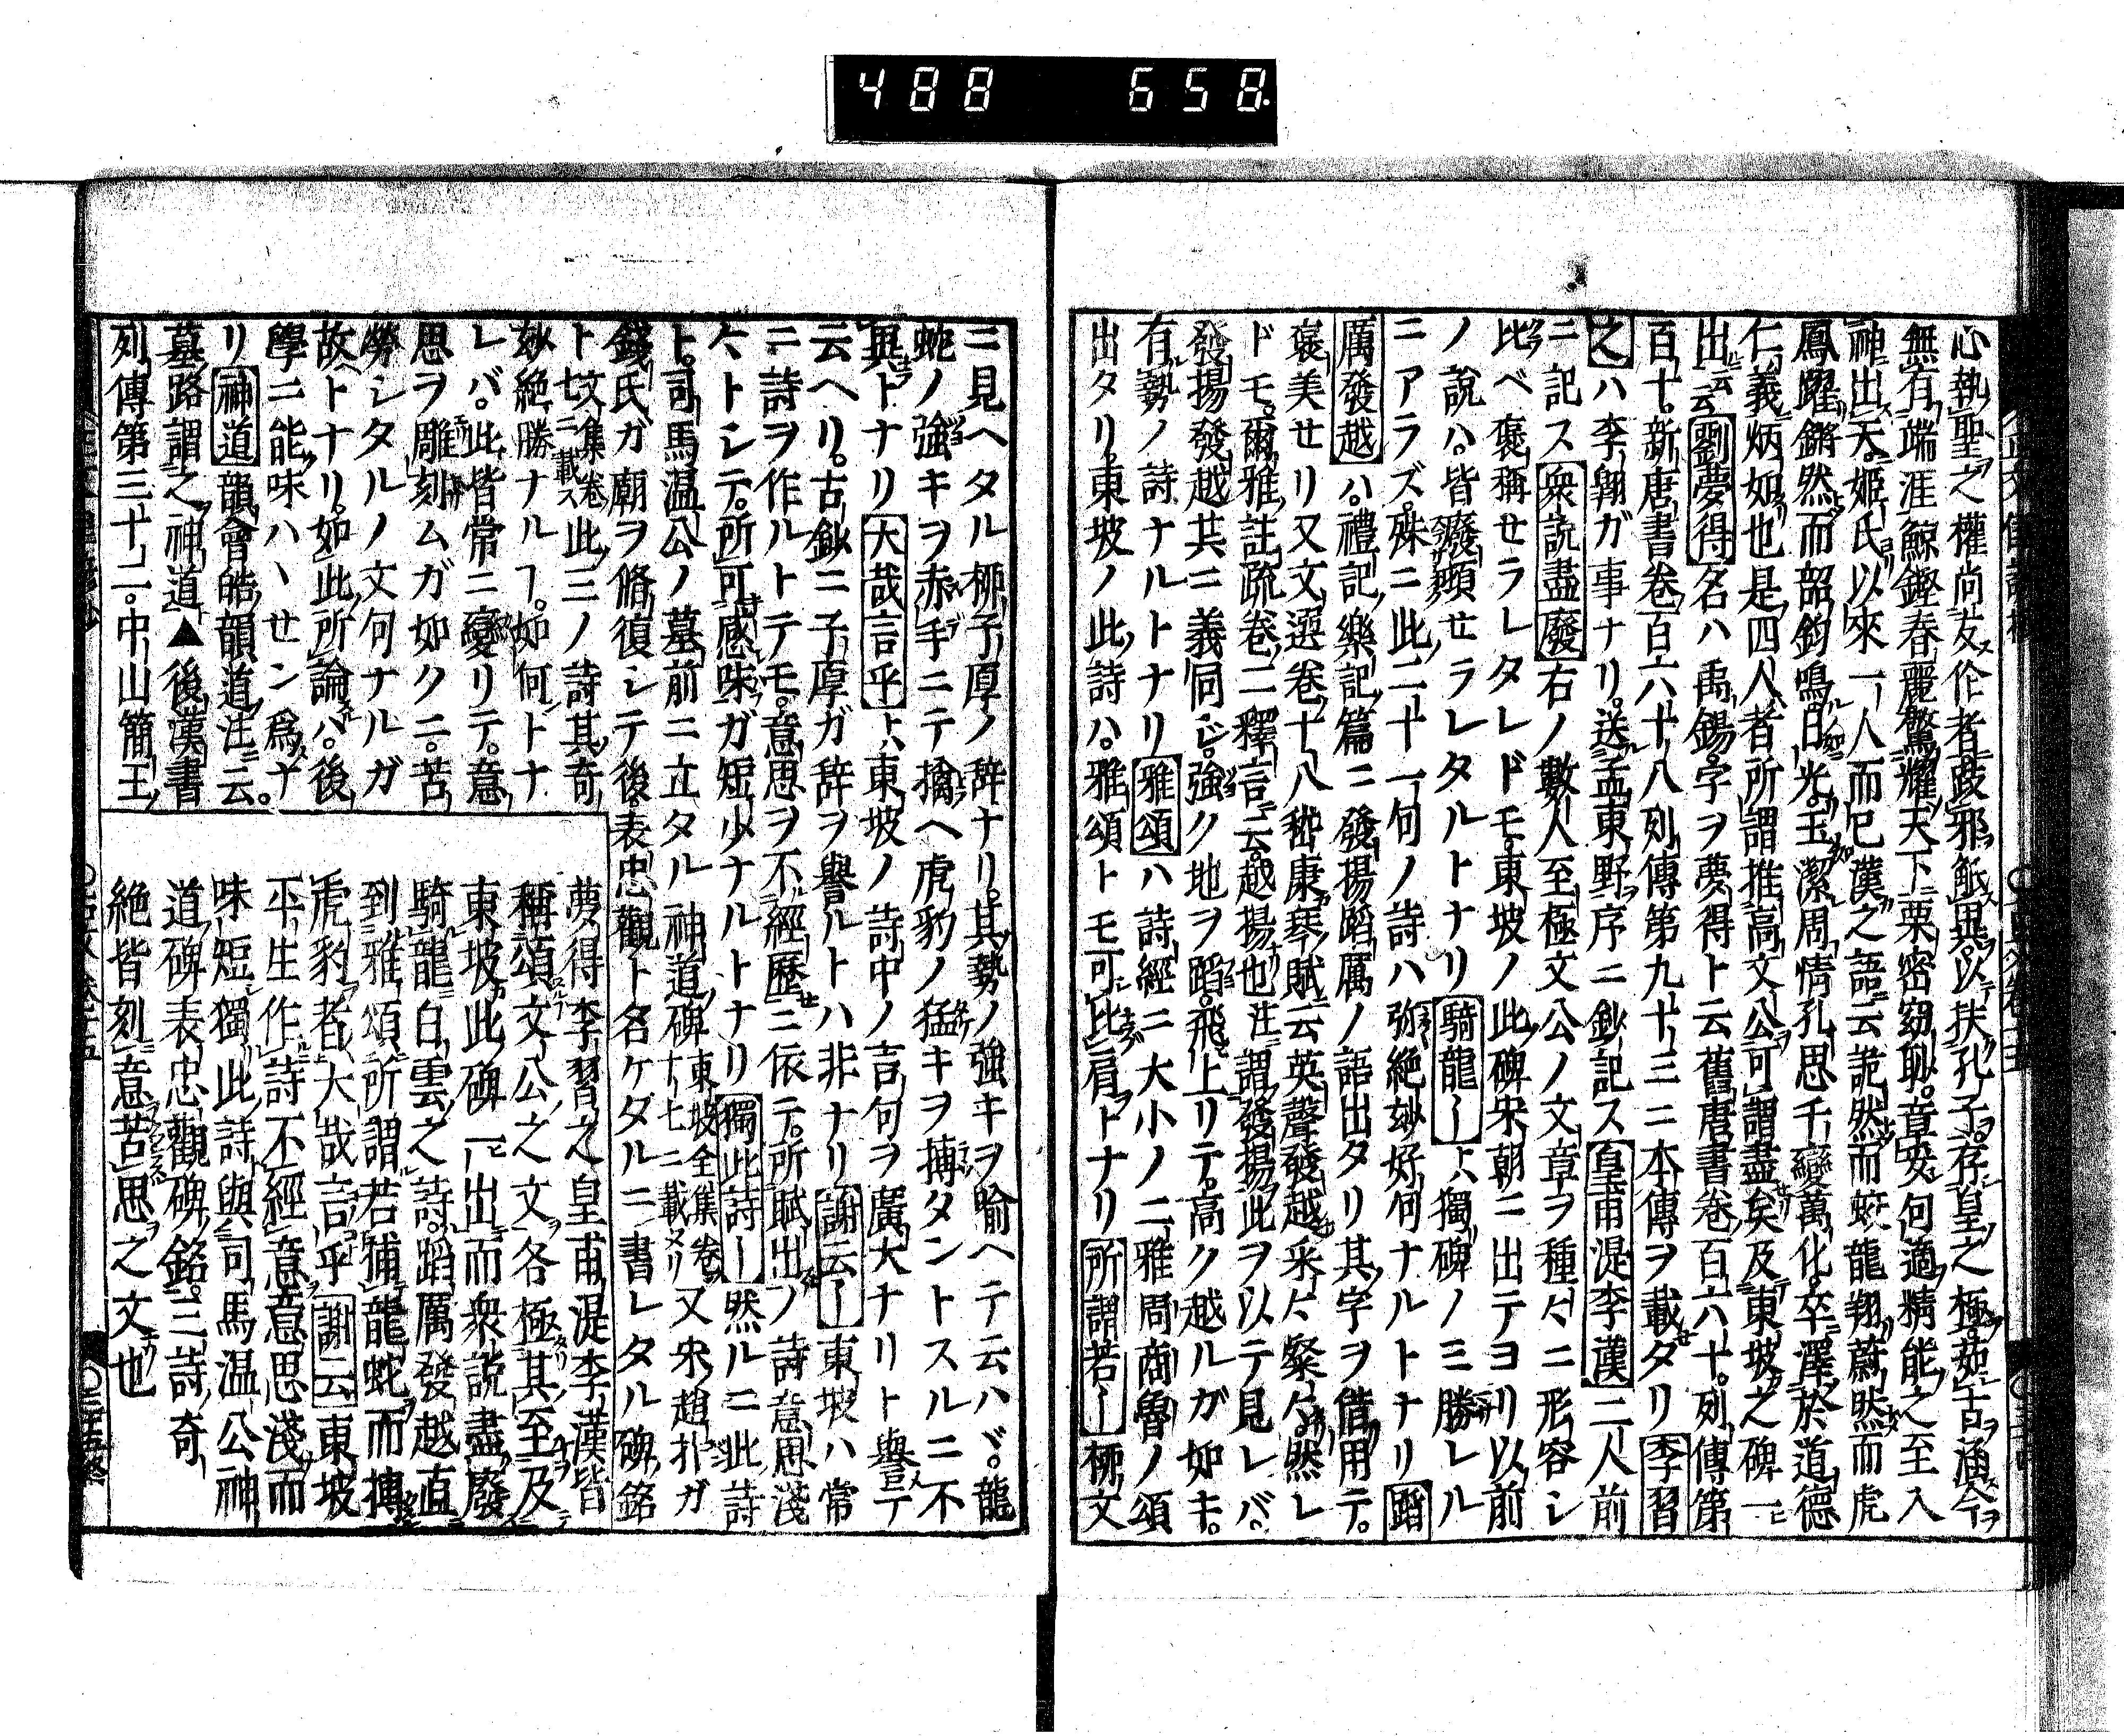 488 658
心執聖之權尚友作者跂邪觝異以扶孔子存皇之極茹古涵今
無有端涯鯨鏗春麗驚耀天下栗密窈眇章妥句適精能之至入
神出天姬氏以來一人而已漢之語云詭然而蛟龍翔蔚然而虎
鳳躍鏘然而韶鈞鳴日光玉潔周情孔思千變萬化卒澤於道德
仁義炳如也是四人者所謂推高文公可謂盡矣及東坡之碑一
出云云劉夢得名ハ禹錫字ヲ夢得ト云舊唐書卷百六十列傳第
百十新唐書卷百六十八列傳第九十三ニ本傳ヲ載タリ李習
之ハ李翱ガ事ナリ送孟東野序ニ鈔記ス皇甫湜李漢二人前
ニ記ス衆説盡廢右ノ數人至極文公ノ文章ヲ種々ニ形容シ
比ベ褒稱セラレタレドモ東坡ノ此碑宋朝ニ出テヨリ以前
ノ說ハ皆癈頓セラレタルトナリ騎龍ーハ獨碑ノミ勝レル
ニアラズ殊ニ此二十一句ノ詩ハ弥絶妙好句ナルトナリ蹈
厲發越ハ禮記樂記篇ニ發揚蹈厲ノ語出タリ其字ヲ借用テ
褒美セリ又文選卷十八嵇康琴賦云英聲發越采々粲々然レ
ドモ爾雅註疏卷二釋言云越揚也注謂發揚此ヲ以テ見レバ
發揚發越共ニ義同ジ強ク地ヲ蹈飛上リテ高ク越ルガ如キ
有勢ノ詩ナルトナリ雅頌ハ詩經ニ大小ノ二雅周商魯ノ頌
出タリ東坡ノ此詩ハ雅頌トモ可比肩トナリ所謂若ー柳文
ニ見ヘタル柳子厚ノ辞ナリ其勢ノ強キヲ喩ヘテ云ハバ龍
蛇ノ強キヲ赤手ニテ擒ヘ虎豹ノ猛キヲ搏タントスルニ不
異トナリ大哉言乎ハ東坡ノ詩中ノ言句ヲ廣大ナリト譽テ
云ヘリ古鈔ニ子厚ガ辞ヲ譽ルトハ非ナリ謝云ー東坡ハ常
ニ詩ヲ作ルトテモ意思ヲ不經歷ニ依テ所賦出ノ詩意思淺
々トシテ所可感味ガ短少ナルトナリ獨此詩ー然ルニ此詩
ト司馬温公ノ墓前ニ立タル神道碑東坡全集卷十七ニ載タリ又宋趙抃ガ
錢氏ガ廟ヲ脩復シテ後表忠觀ト名ケタルニ書レタル碑銘
ト文集卷七ニ載ス此三ノ詩其奇
妙絶勝ナルヿ如何トナ
レバ此皆常ニ變リテ意
思ヲ雕刻ムガ如クニ苦
勞シタルノ文句ナルガ
故トナリ如此所論ハ後
學ニ能味ハヽセン爲ナ
リ神道韻會皓韻道注云
墓路謂之神道▲後漢書
列傳第三十二中山簡王
夢得李習之皇甫湜李漢皆
稱頌文公之文各極其至及
東坡此碑一出而衆説盡廢
騎龍白雲之詩蹈厲發越直
到雅頌所謂若捕龍蛇而搏
虎豹者大哉言乎謝云東坡
平生作詩不經意意思淺而
味短獨此詩與司馬温公神
道碑表忠觀碑銘三詩奇
絶皆刻意苦思之文也